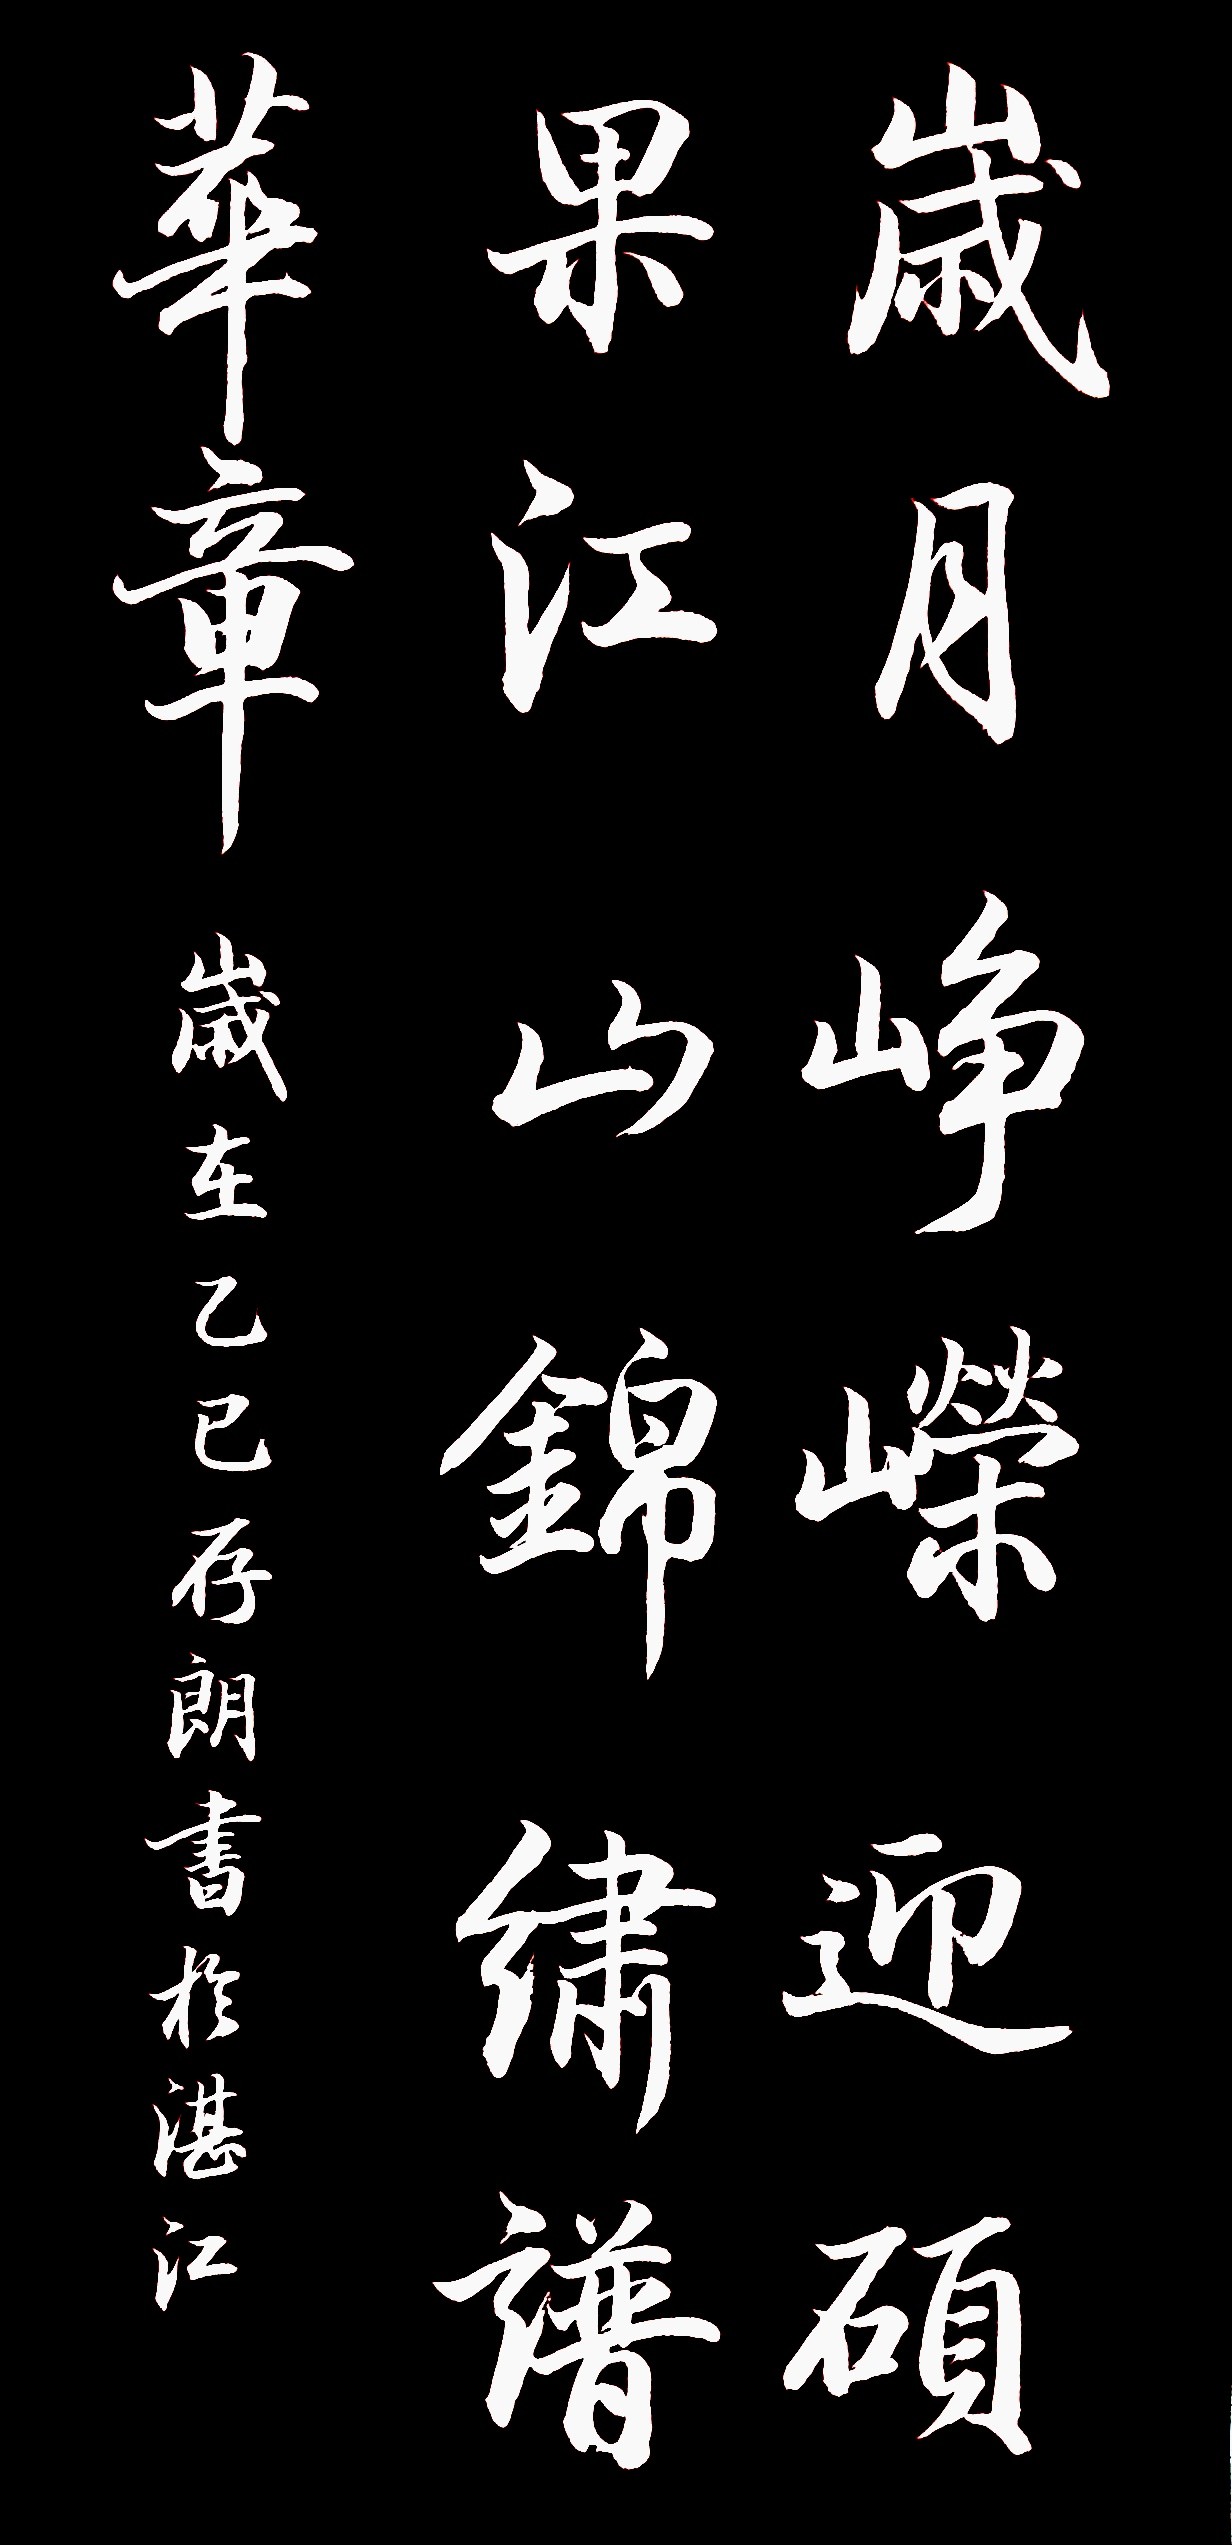 歲月峥嶸迎碩
果江山錦繡譜
華章歲在乙巳存朗書於湛江